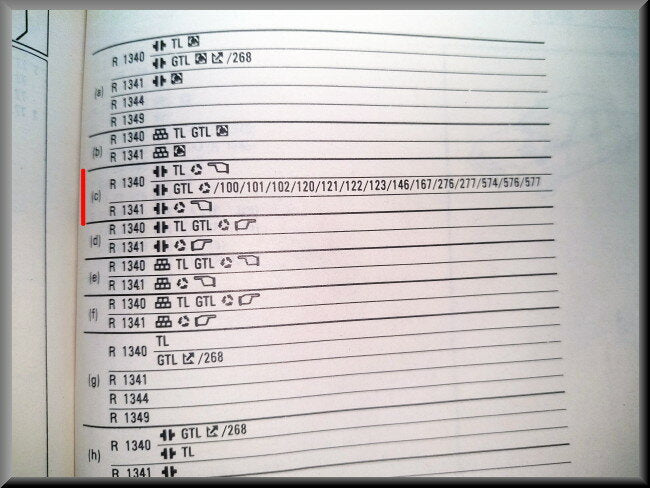 (a) R 1340 TL
GTL /268
R 1341
R 1344
R 1349
(b) R 1340 TL GTL
R 1341
(c) R 1340 TL
GTL /100/101/102/120/121/122/123/146/167/276/277/574/576/577
R 1341
(d) R 1340 TL GTL
R 1341
(e) R 1340 TL GTL
R 1341
(f) R 1340 TL GTL
R 1341
(g) R 1340 TL
GTL /268
R 1341
R 1344
R 1349
(h) R 1340 GTL /268
TL
R 1341